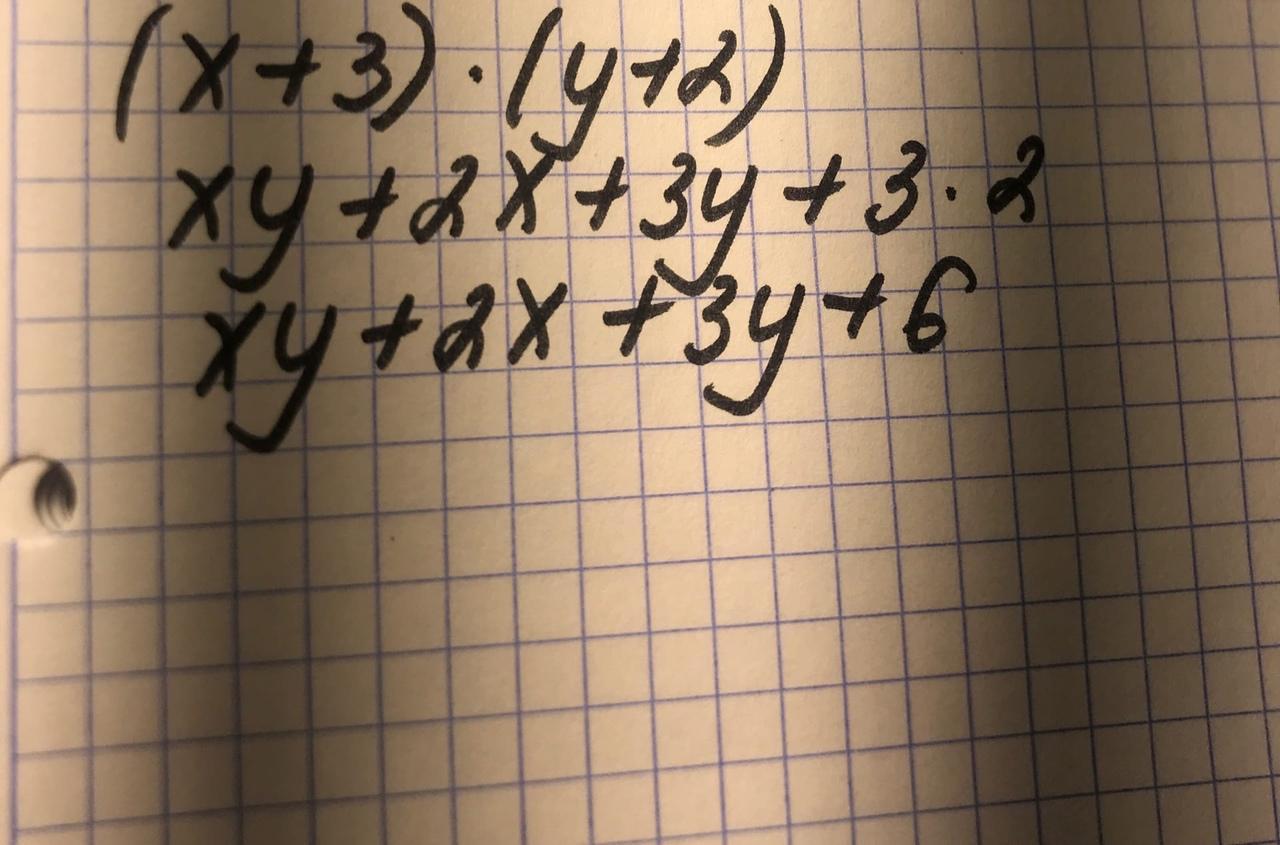 (x+3)·(y+2)
xy+2x+3y+3·2
xy+2x+3y+6